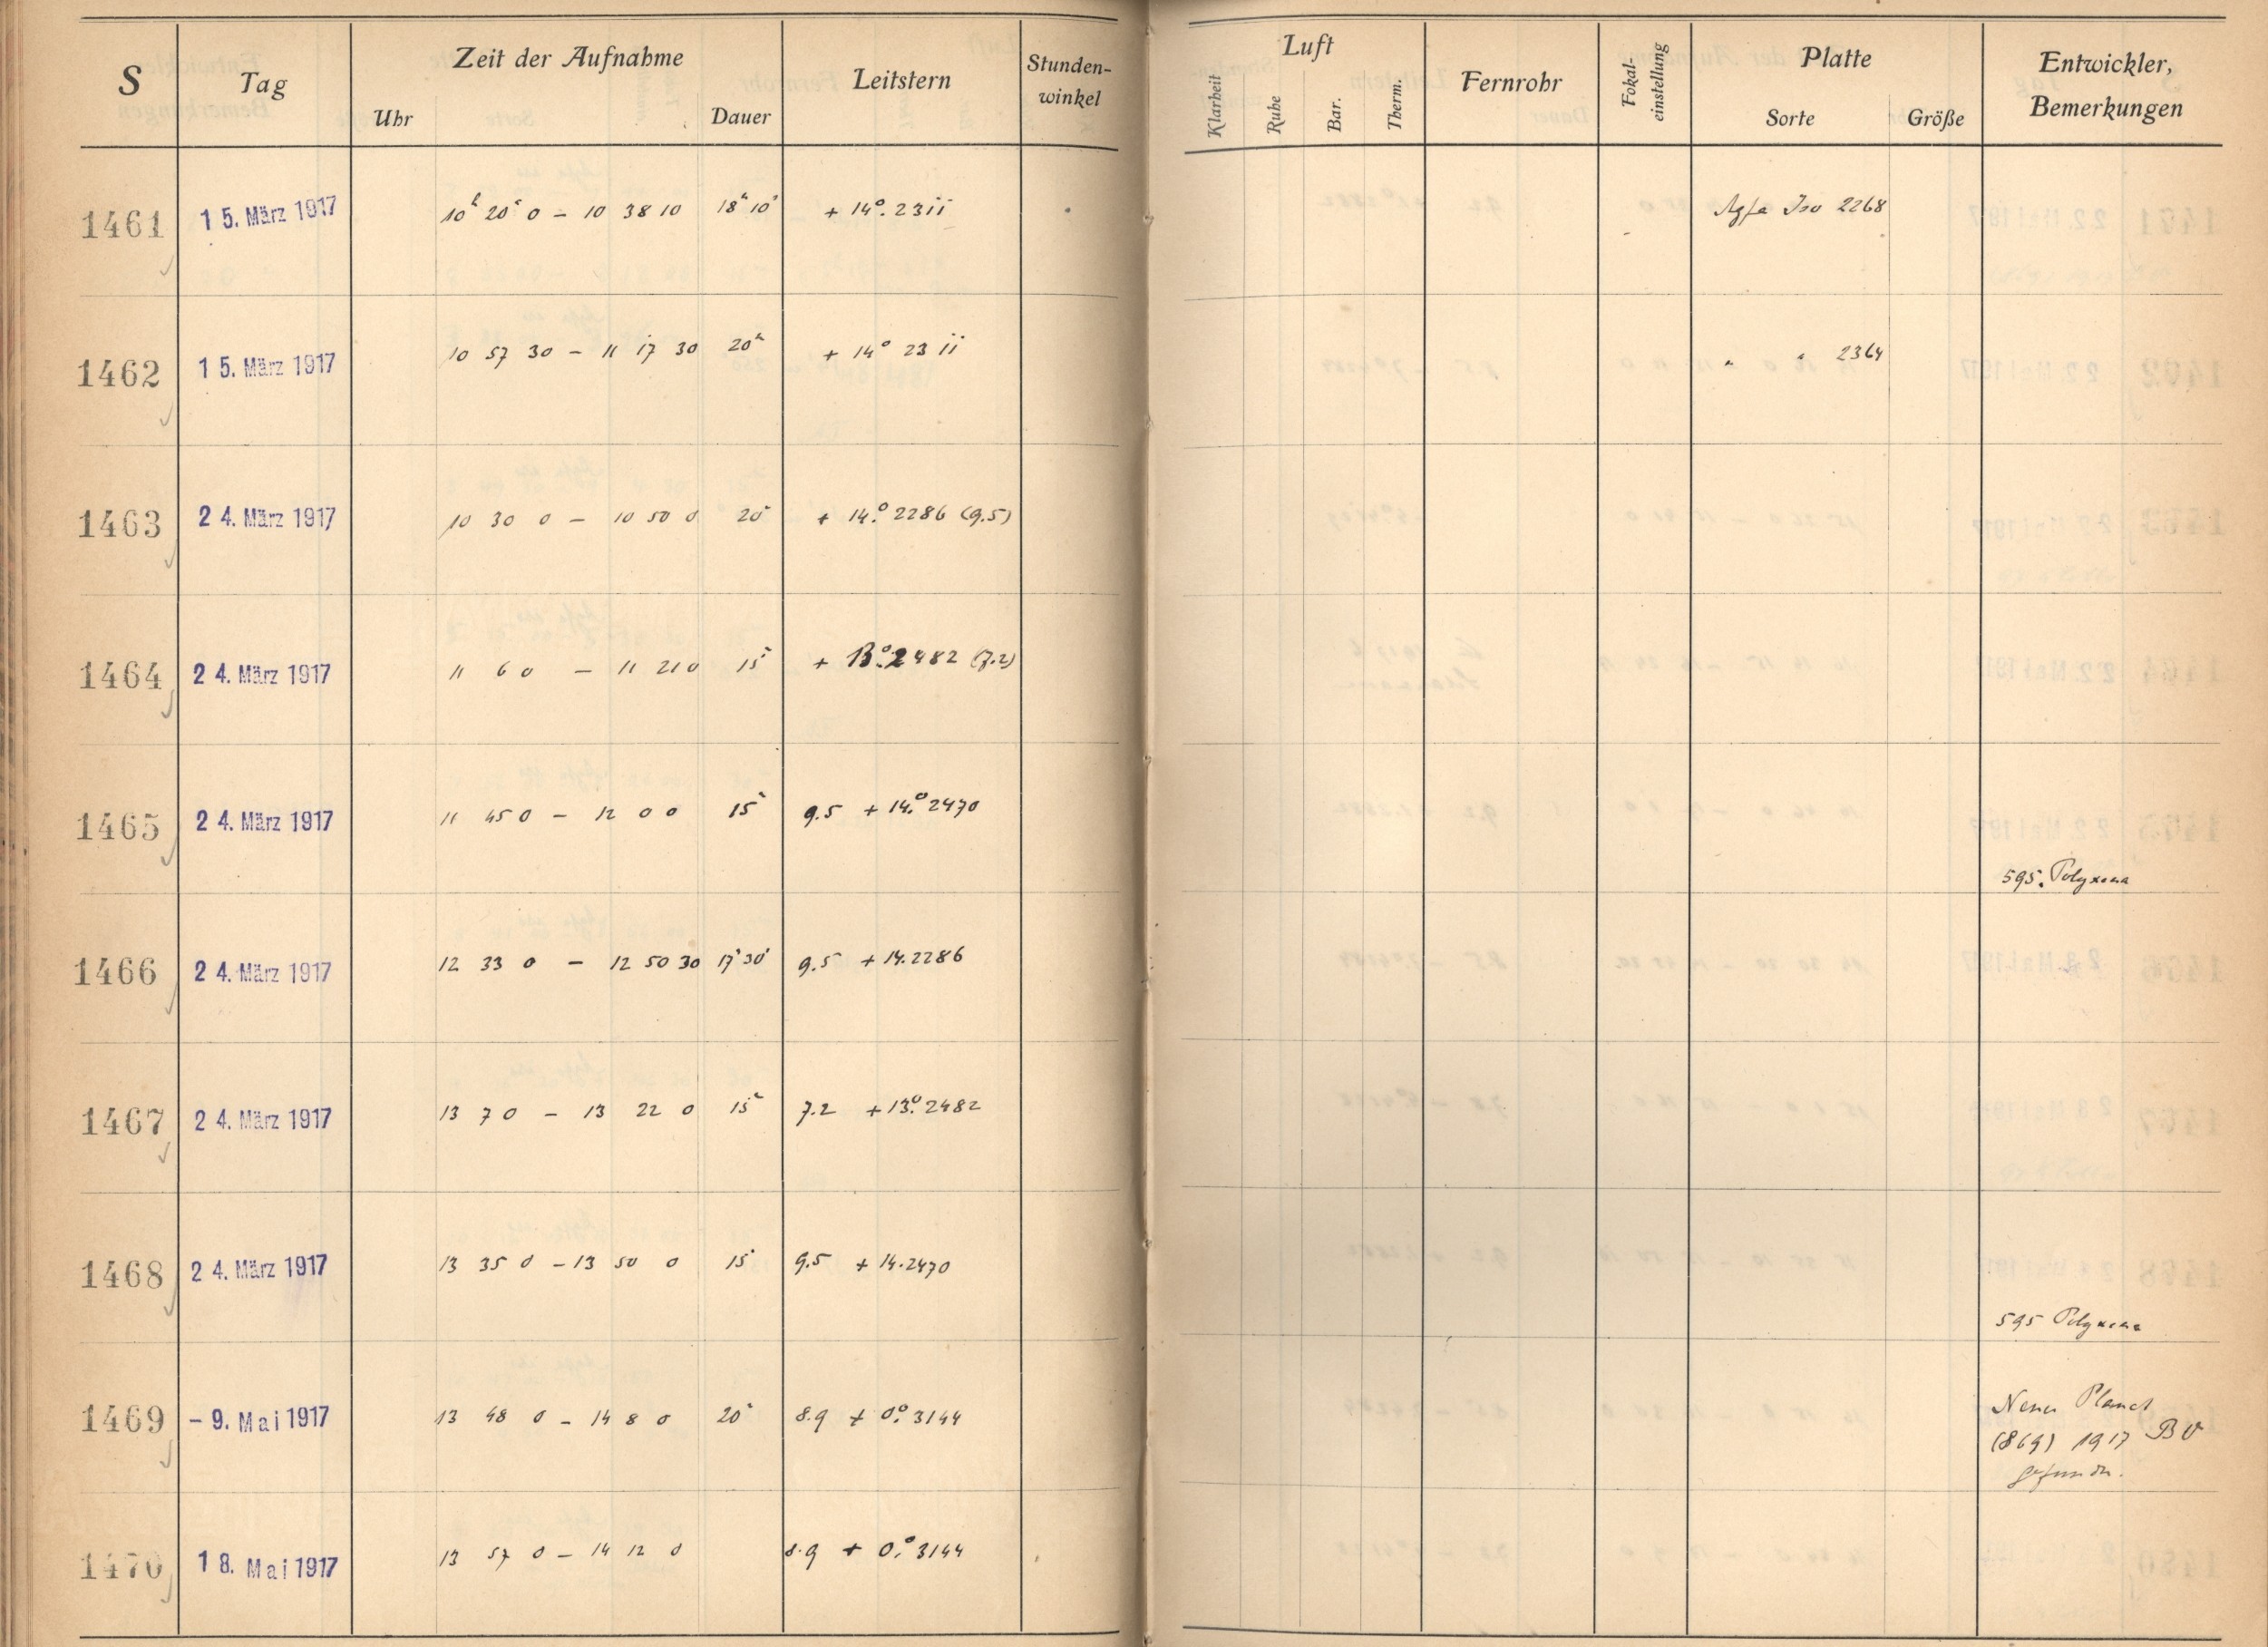 S Tag Zeit der Aufnahme Uhr Dauer Leitstern Stunden-winkel Luft Klarheit Ruhe Bar. Therm. Fernrohr Fokal-einstellung Platte Sorte Größe Entwickler, Bemerkungen
1461 15. März 1917 10 20 0 – 10 38 10 18 10 + 14°. 2311 Agfa Iso 2268
1462 15. März 1917 10 57 30 – 11 17 30 20 + 14° 2311 " " 2364
1463 24. März 1917 10 30 0 – 10 50 0 20 + 14.° 2286 (9.5)
1464 24. März 1917 11 6 0 – 11 21 0 15 + 13.° 2482 (7.2)
1465 24. März 1917 11 45 0 – 12 0 0 15 9.5 + 14.° 2470
595. Polyxena
1466 24. März 1917 12 33 0 – 12 50 30 17 30 9.5 + 14.2286
1467 24. März 1917 13 7 0 – 13 22 0 15 7.2 + 13.° 2482
1468 24. März 1917 13 35 0 – 13 50 0 15 9.5 + 14.2470
595 Polyxena
1469 – 9. Mai 1917 13 48 0 – 14 8 0 20 8.9 + 0.° 3144 Neuer Planet
(869) 1917 BV
gefunden.
1470 18. Mai 1917 13 57 0 – 14 12 0 8.9 + 0.° 3144